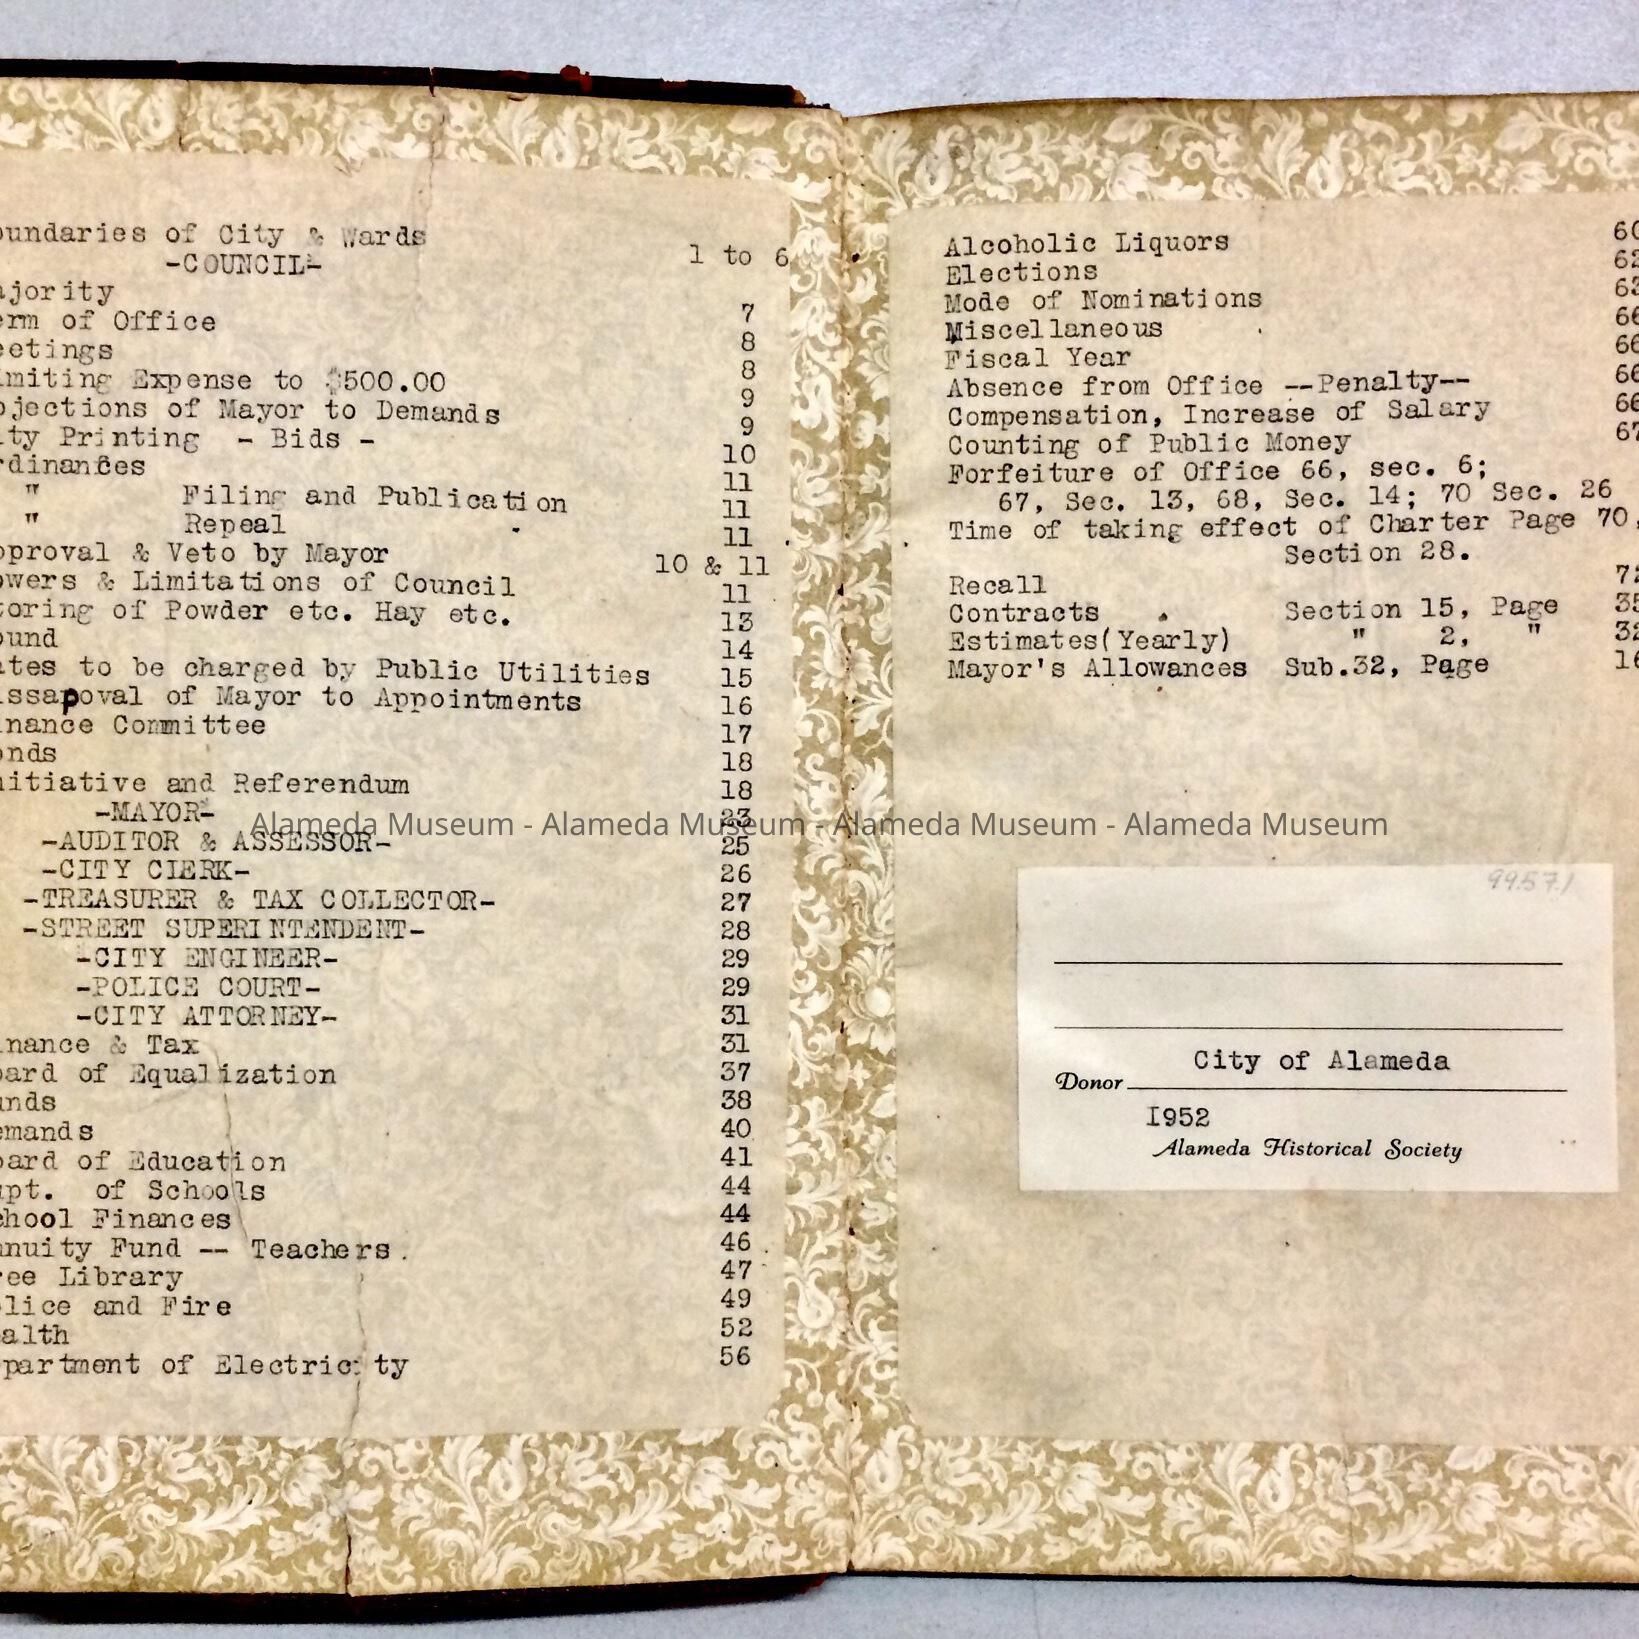 oundaries of City & Wards 1 to 6
-COUNCIL-
ajority 7
erm of Office 8
eetings 8
imiting Expense to $500.00 9
bjections of Mayor to Demands 9
ity Printing - Bids - 10
rdinances 11
" Filing and Publication 11
" Repeal 11
pproval & Veto by Mayor 10 & 11
owers & Limitations of Council 11
toring of Powder etc. Hay etc. 13
ound 14
ates to be charged by Public Utilities 15
issapoval of Mayor to Appointments 16
inance Committee 17
onds 18
nitiative and Referendum 18
-MAYOR- 23
-AUDITOR & ASSESSOR- 25
-CITY CLERK- 26
-TREASURER & TAX COLLECTOR- 27
-STREET SUPERINTENDENT- 28
-CITY ENGINEER- 29
-POLICE COURT- 29
-CITY ATTORNEY- 31
inance & Tax 31
oard of Equalization 37
unds 38
emands 40
oard of Education 41
upt. of Schools 44
chool Finances 44
nnuity Fund -- Teachers. 46
ree Library 47
lice and Fire 49
alth 52
partment of Electricity 56
Alcoholic Liquors 60
Elections 62
Mode of Nominations 63
Miscellaneous 66
Fiscal Year 66
Absence from Office --Penalty-- 66
Compensation, Increase of Salary 66
Counting of Public Money 67
Forfeiture of Office 66, sec. 6;
67, Sec. 13, 68, Sec. 14; 70 Sec. 26
Time of taking effect of Charter Page 70,
Section 28.
Recall 72
Contracts Section 15, Page 35
Estimates(Yearly) " 2, " 32
Mayor's Allowances Sub.32, Page 16
Alameda Museum - Alameda Museum - Alameda Museum - Alameda Museum
99.57.1
City of Alameda
Donor
I952
Alameda Historical Society